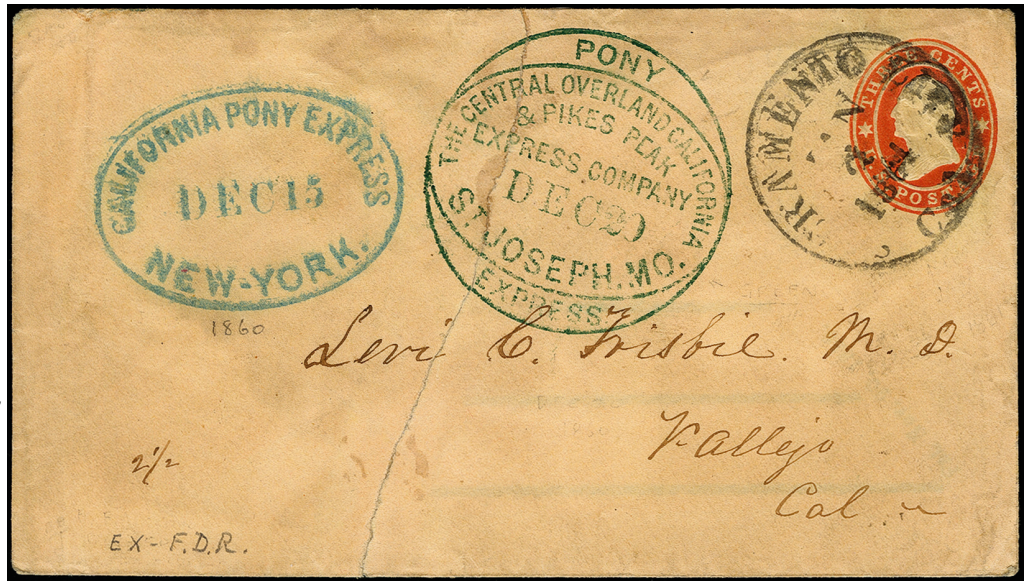 CALIFORNIA PONY EXPRESS
DEC 15
NEW-YORK.
PONY
THE CENTRAL OVERLAND CALIFORNIA
& PIKES PEAK
EXPRESS COMPANY
DEC 20
ST JOSEPH. MO.
EXPRESS
THREE CENTS
U.S. POST
1860
Levi C. Frisbie. M. D.
Vallejo
Cal.
2 1/2
EX-F.D.R.